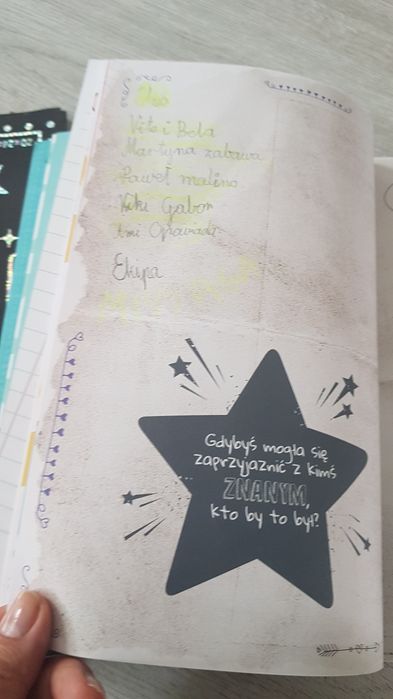 Vito i Bela
Martyna zabawa
Paweł malino
Kiki Gabor
Ami Opowiada
Ekipa
Gdybyś mogła się
zaprzyjaźnić z kimś
ZNANYM,
kto by to był?